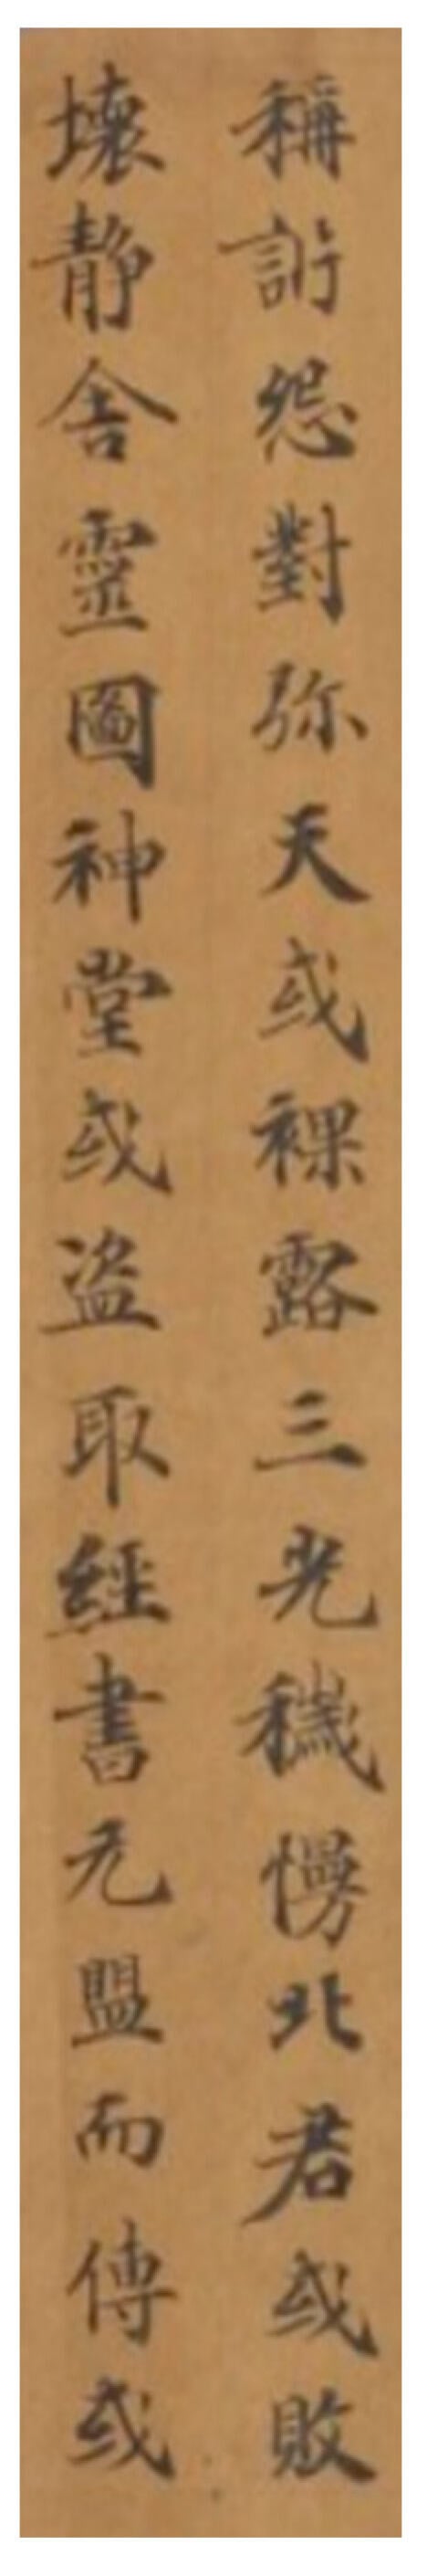 稱訴怨對弥天或裸露三光穢慢北君或敗
壞静舍靈圖神堂或盗取經書无盟而傳或